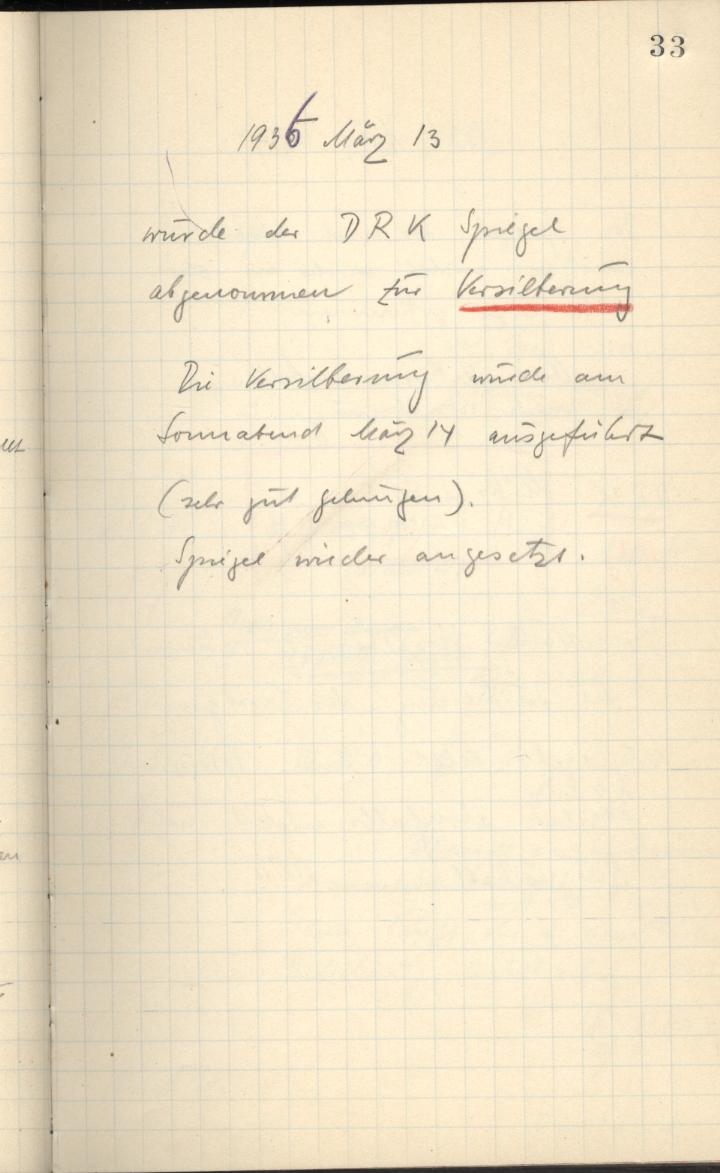 33
1936 März 13
wurde der DRK Spiegel
abgenommen zur Versilberung
Die Versilberung wurde am
Sonnabend März 14 ausgeführt
(sehr gut gelungen).
Spiegel wieder angesetzt.